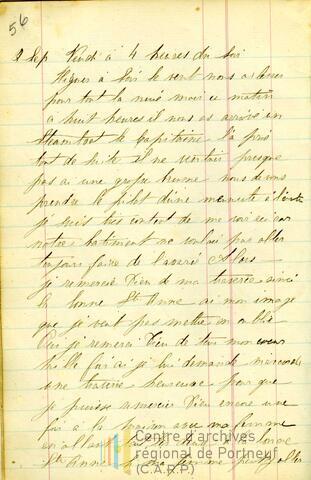 56
2 Sep Vendi à 4 heures du soir
Higner à soir le vent nous a laser
pour tout la nuié mais ce matin
à huit heures il nous es arrivé un
Steamboat le Capitaine l'a pris
tout de suite il ne ventais presque
pas ai une grosse brume nous devons
prendre le pilot dune menute à l'autre
je suis tres contant de me voir ici car
notre batiment ne voulai pas aller
toujour faire de Alors
je remercie Dieu de ma traversé ainsi
la bonne Ste Anne ai mon image
que je veut pas mettre en oublié
Oui je remerci Dieu de tout mon coeur
mille fois ai je lui demande
une traversé heureuse pour que
je puisse remercier Dieu encore une
foi à la maison avec ma femme
en allant la bonne
Ste Anne ma femme aller
Centre d'archives
régional de Portneuf
(C.A.R.P.)